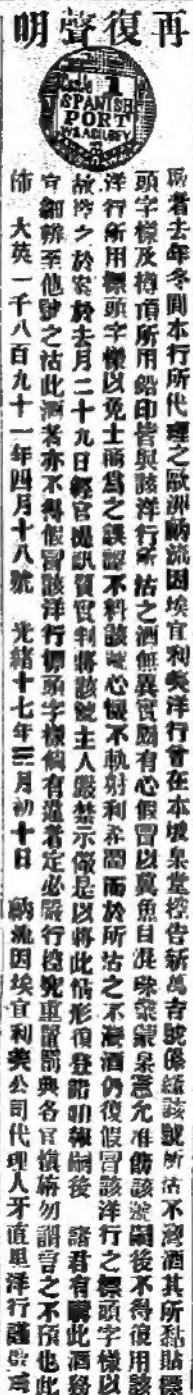 再復聲明
Castle 1
SPANISH
PORT
W&A GILBEY
啟者去年冬間本行所代理之歐洲納流因埃宜利美洋行曾在本坡臬堂控告新萬吉號係緣該號所沽不灑酒其所黏貼標
頭字樣及樽頂所用鉛印皆與該洋行所沽之酒無異實屬有心假冒以冀魚目混珠蒙臬憲允准飭該號嗣後不得復用該
洋行所用標頭字樣以免士商為之誤認不料該號心懷不軌射利弄閧而於所沽之不灑酒仍復假冒該洋行之標頭字樣以
故控之於案於去月二十九日經官提訊質實判將該號主人嚴禁示儆是以將此情形復登諸叻報嗣後 諸君有購此酒務
宜細辨至他號之沽此酒者亦不得假冒該洋行標頭字樣倘有違者定必嚴行控究重置罰典各宜慎旃勿謂言之不預也此
佈 大英一千八百九十一年四月十八號 光緒十七年三月初十日 納流因埃宜利美公司代理人牙直里洋行謹啟